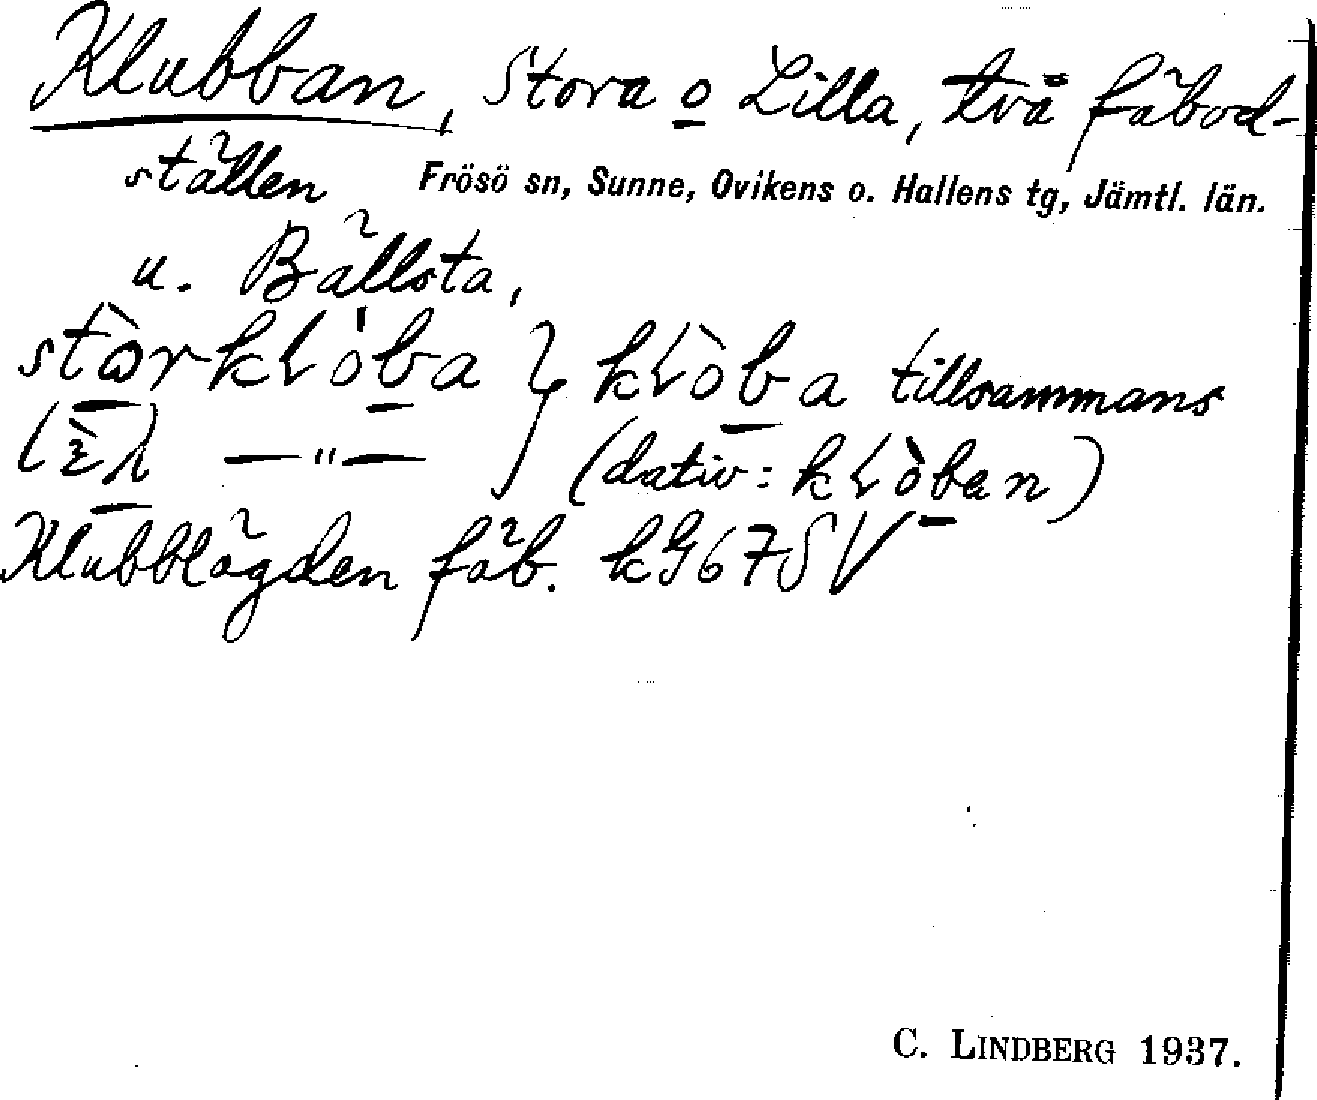 Klubban, Stora o Lilla, två fäbod-
ställen Frösö sn, Sunne, Ovikens o. Hallens tg, Jämtl. län.
u. Bällsta,
tillsammans
(dativ:
Klubblägden fäb. kG67SV
C. LINDBERG 1937.